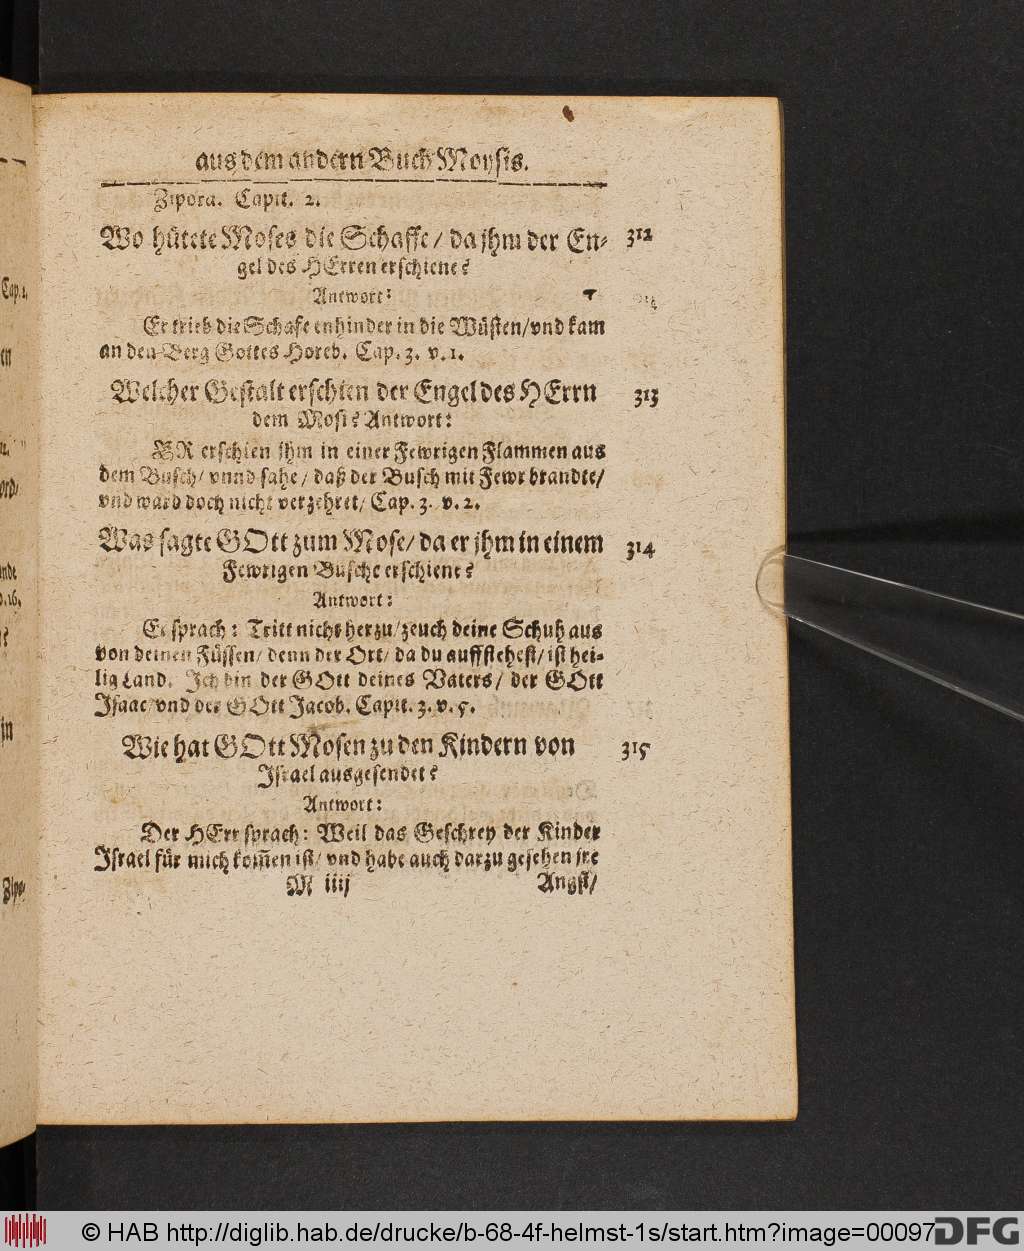 aus dem andern Buch Moysis.
Zipora. Capit. 2.
Wo hütete Moses die Schaffe / da jhm der En- 312
gel des HErren erschiene?
Antwort:
Er trieb die Schafe enhinder in die Wüsten/vnd kam
an den Berg Gottes Horeb. Cap. 3. v. 1.
Welcher Gestalt erschien der Engel des HErrn 313
dem Mosi? Antwort:
ER erschien jhm in einer Fewrigen Flammen aus
dem Busch/ vnnd sahe / daß der Busch mit Fewr brandte/
vnd ward doch nicht verzehret/ Cap. 3. v. 2.
Was sagte GOtt zum Mose/ da er jhm in einem 314
Fewrigen Busche erschiene?
Antwort:
Er sprach: Tritt nicht herzu/ zeuch deine Schuh aus
von deinen Füssen/ denn der Ort/ da du auffstehest/ ist hei-
lig Land. Ich bin der GOtt deines Vaters/ der GOtt
Isaac vnd der GOtt Jacob. Capit. 3. v. 5.
Wie hat GOtt Mosen zu den Kindern von 315
Israel ausgesendet?
Antwort:
Der HErr sprach: Weil das Geschrey der Kinder
Israel für mich kom̄en ist/ vnd habe auch darzu gesehen jre
M iiij Angst/
Cap. 2.
en
d. 16.
in
Zipo-
© HAB http://diglib.hab.de/drucke/b-68-4f-helmst-1s/start.htm?image=00097
DFG